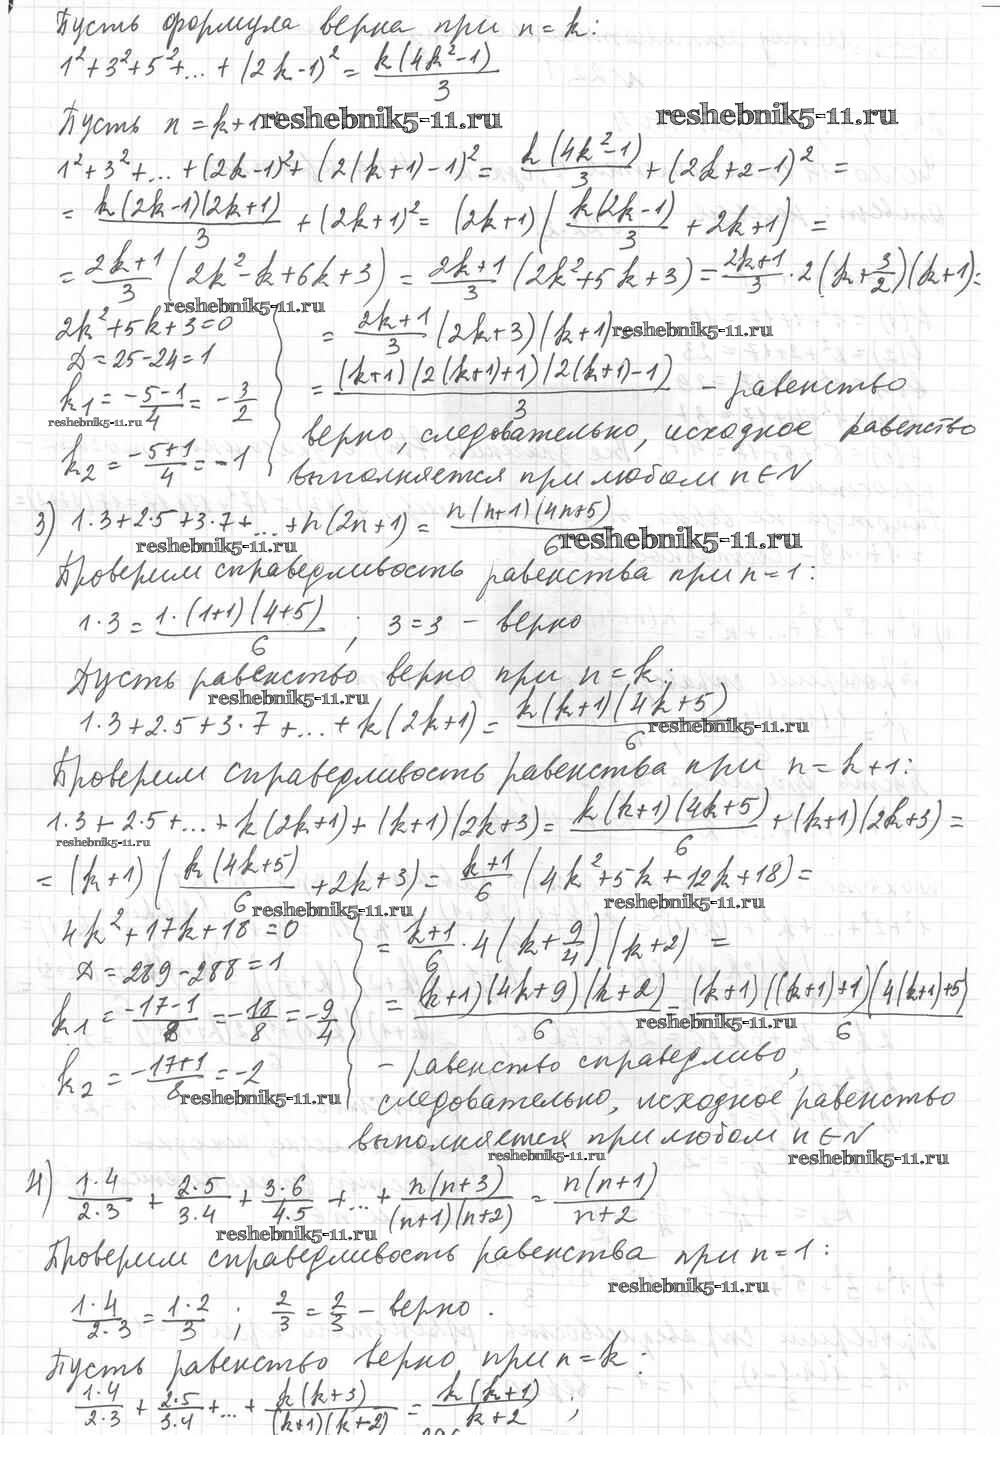 Пусть формула верна при n = k:
1² + 3² + 5² + ... + (2k-1)² = k(4k²-1)/3
Пусть n = k+1 reshebnik5-11.ru reshebnik5-11.ru
1² + 3² + ... + (2k-1)² + (2(k+1)-1)² = k(4k²-1)/3 + (2k+2-1)² =
= k(2k-1)(2k+1)/3 + (2k+1)² = (2k+1)(k(2k-1)/3 + 2k+1) =
= (2k+1)/3 (2k²-k+6k+3) = (2k+1)/3 (2k²+5k+3) = (2k+1)/3 · 2(k+3/2)(k+1) =
reshebnik5-11.ru
2k²+5k+3=0
D = 25-24 = 1
k₁ = (-5-1)/4 = -3/2
reshebnik5-11.ru
k₂ = (-5+1)/4 = -1
= (2k+1)/3 (2k+3)(k+1) = reshebnik5-11.ru
= (k+1)(2(k+1)+1)(2(k+1)-1)/3 - равенство
верно, следовательно, исходное равенство
выполняется при любом n∈N
3) 1·3+2·5+3·7+...+n(2n+1) = n(n+1)(4n+5)/6
reshebnik5-11.ru reshebnik5-11.ru
Проверим справедливость равенства при n=1:
1·3 = 1·(1+1)(4+5)/6 ; 3=3 - верно
Пусть равенство верно при n=k:
reshebnik5-11.ru
1·3+2·5+3·7+...+k(2k+1) = k(k+1)(4k+5)/6
reshebnik5-11.ru
Проверим справедливость равенства при n=k+1:
1·3+2·5+...+k(2k+1)+(k+1)(2k+3) = k(k+1)(4k+5)/6 + (k+1)(2k+3) =
reshebnik5-11.ru
= (k+1)(k(4k+5)/6 + 2k+3) = (k+1)/6 (4k²+5k+12k+18) =
reshebnik5-11.ru reshebnik5-11.ru
4k²+17k+18=0
D = 289-288 = 1
k₁ = (-17-1)/8 = -18/8 = -9/4
k₂ = (-17+1)/8 = -2
reshebnik5-11.ru
= (k+1)/6 · 4(k+9/4)(k+2) =
= (k+1)(4k+9)(k+2)/6 = (k+1)((k+1)+1)(4(k+1)+5)/6
reshebnik5-11.ru
- равенство справедливо,
следовательно, исходное равенство
выполняется при любом n∈N
reshebnik5-11.ru reshebnik5-11.ru
4) 1·4/2·3 + 2·5/3·4 + 3·6/4·5 + ... + n(n+3)/(n+1)(n+2) = n(n+1)/n+2
reshebnik5-11.ru
Проверим справедливость равенства при n=1:
reshebnik5-11.ru
1·4/2·3 = 1·2/3 ; 2/3 = 2/3 - верно.
Пусть равенство верно при n=k:
1·4/2·3 + 2·5/3·4 + ... + k(k+3)/(k+1)(k+2) = k(k+1)/k+2 ;